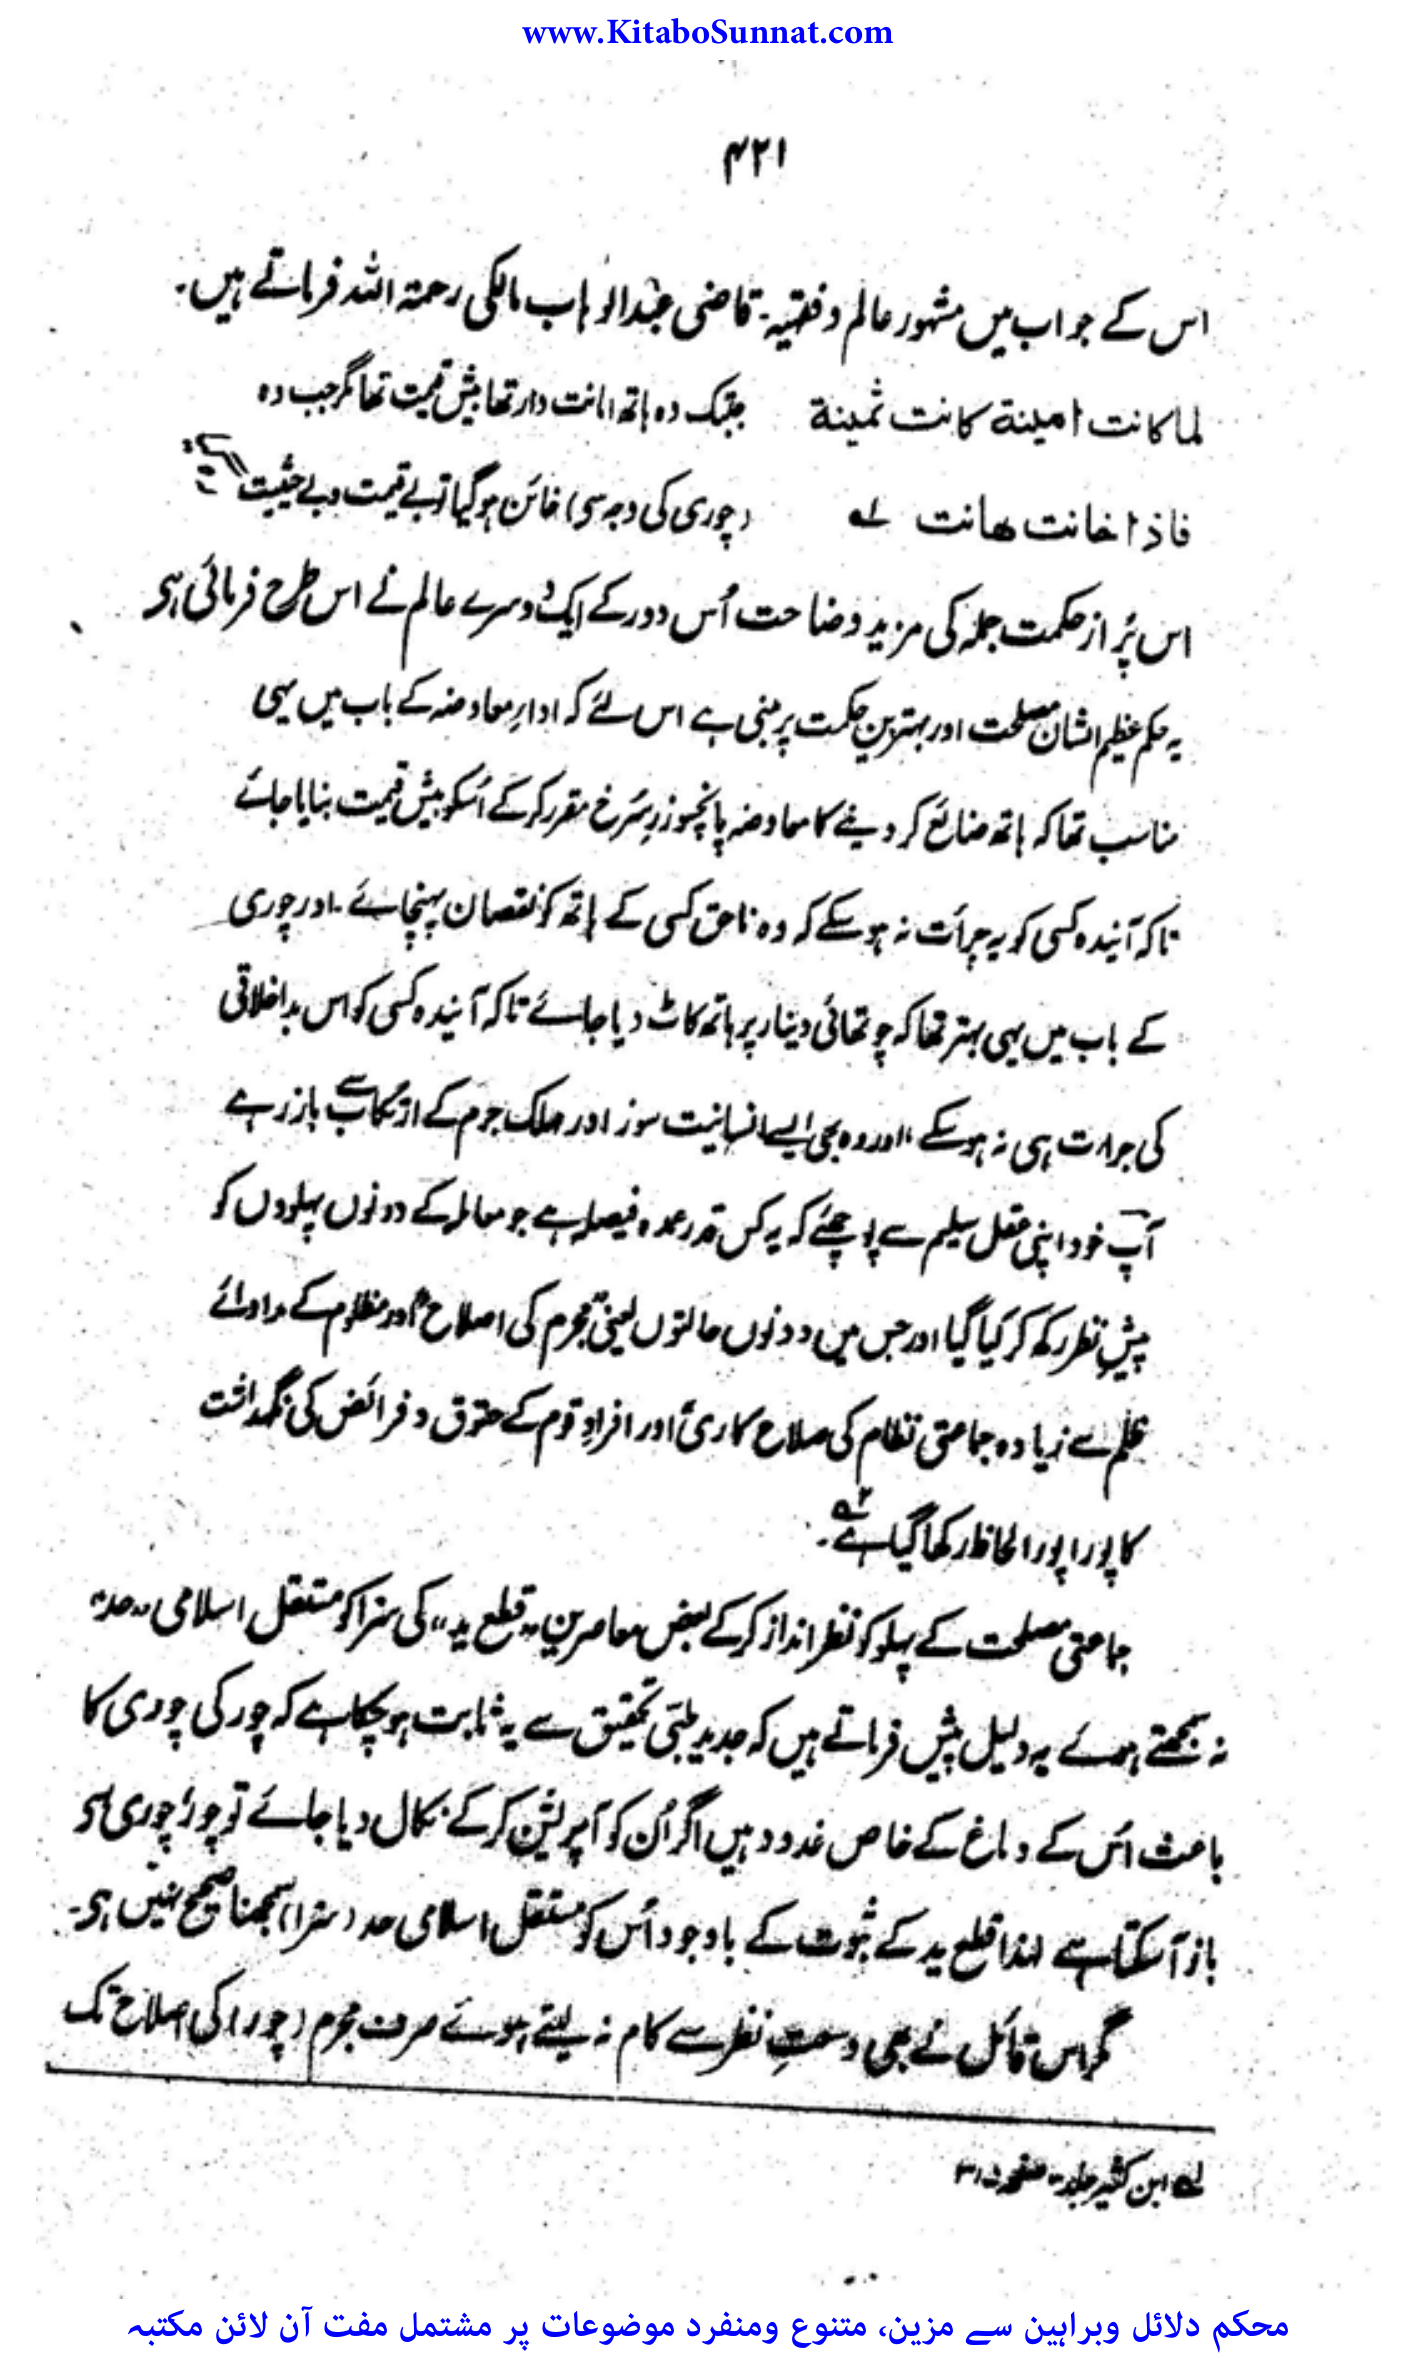 www.KitaboSunnat.com
۴۲۱
اس کے جواب میں مشہور عالم و فقیہہ۔ قاضی عبدالوہاب مالکی رحمۃ اللہ فرماتے ہیں۔
لما کانت امینة کانت ثمینة جبتک وہ ہاتھ امانت دار تھا بیش قیمت تھا مگر جب وہ
فاذا خانت هانت لہ (چوری کی وجہ سی) خائن ہو گیا تو بے قیمت و بے حیثیت
اس پُر از حکمت جملہ کی مزید وضاحت اُس دور کے ایک دوسرے عالم نے اس طرح فرمائی ہی
یہ حکم عظیم الشان مصلحت اور بہترین حکمت پر مبنی ہے اس لئے کہ اداءِ معاوضہ کے باب میں یہی
مناسب تھا کہ ہاتھ ضائع کر دینے کا معاوضہ پانچسو زرِ سُرخ مقرر کر کے اُسکو بیش قیمت بنایا جائے
تاکہ آئندہ کسی کو یہ جرأت نہ ہو سکے کہ وہ ناحق کسی کے ہاتھ کو نقصان پہنچائے۔ اور چوری
کے باب میں یہی بہتر تھا کہ چوتھائی دینار پر ہاتھ کاٹ دیا جائے تاکہ آئندہ کسی کو اس بداخلاقی
کی جرات ہی نہ ہو سکے، اور وہ بھی ایسے انسانیت سوز اور مہلک جرم کے ارتکاب سے باز رہے
آپ خود اپنی عقل سلیم سے پوچھئے کہ یہ کس قدر عمدہ فیصلہ ہے جو معاملہ کے دونوں پہلووں کو
پیشِ نظر رکھ کر کیا گیا اور جس میں دونوں حالتوں یعنی مجرم کی اصلاح اور مظلوم کے مداوائے
ظلم سے زیادہ جماعتی نظام کی صلاح کاری اور افرادِ قوم کے حقوق و فرائض کی نگہداشت
کا پورا پورا لحاظ رکھا گیا ہے ۲ہ۔
جماعتی مصلحت کے پہلو کو نظر انداز کر کے بعض معاصرین "قطع ید" کی سزا کو مستقل اسلامی "حد"
نہ سمجھتے ہوئے یہ دلیل پیش فرماتے ہیں کہ جدید طبّی تحقیق سے یہ ثابت ہو چکا ہے کہ چور کی چوری کا
باعث اُس کے دماغ کے خاص غدود ہیں اگر اُن کو آپریشن کر کے نکال دیا جائے تو چور چوری سی
باز آ سکتا ہے لہذا قطع ید کے ثبوت کے باوجود اُس کو مستقل اسلامی حد (سزا) سمجھنا صحیح نہیں ہی۔
مگر اس قائل نے بھی وسعتِ نظر سے کام نہ لیتے ہوئے صرف مجرم (چور) کی اصلاح تک
لہ ابن کثیر جلد صفحہ
محکم دلائل وبراہین سے مزین، متنوع ومنفرد موضوعات پر مشتمل مفت آن لائن مکتبہ